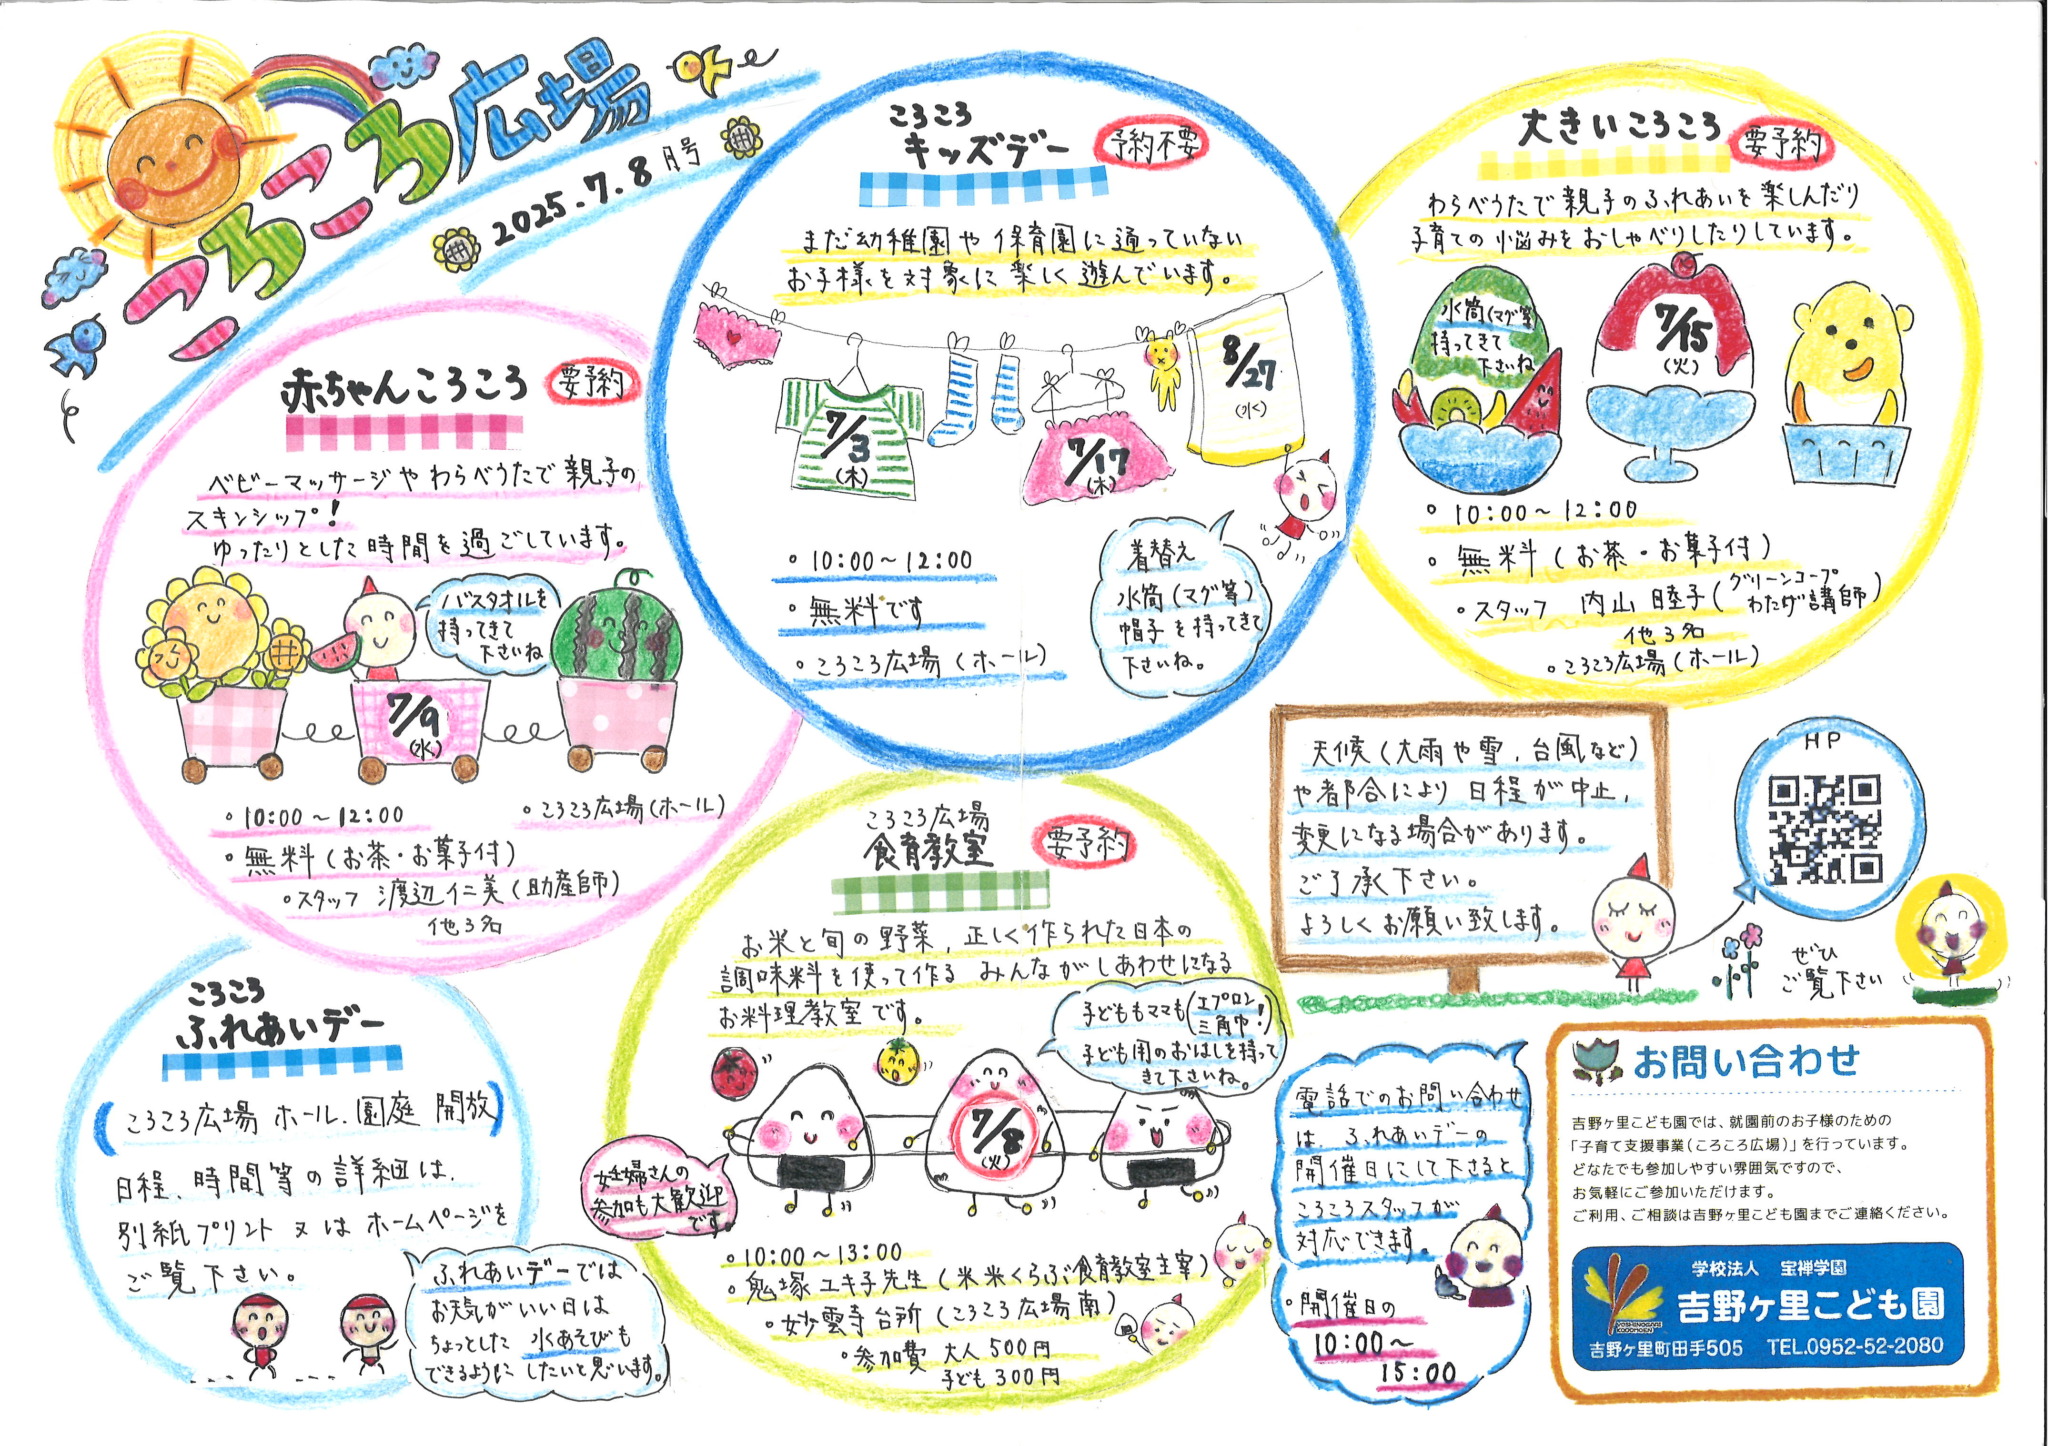 ころころ広場
2025.7.8月号
ころころ
キッズデー
予約不要
まだ幼稚園や保育園に通っていない
お子様を対象に楽しく遊んでいます。
7/3
(木)
7/17
(木)
8/27
(水)
・10:00~12:00
・無料です
・ころころ広場(ホール)
着替え
水筒(マグ等)
帽子を持ってきて
下さいね。
大きいころころ
要予約
わらべうたで親子のふれあいを楽しんだり
子育ての悩みをおしゃべりしたりしています。
水筒(マグ等)
持ってきて
下さいね
7/15
(火)
・10:00~12:00
・無料(お茶・お菓子付)
・スタッフ 内山睦子(グリーンコープ
わたげ講師)
他3名
・ころころ広場(ホール)
赤ちゃんころころ
要予約
ベビーマッサージやわらべうたで親子の
スキンシップ!
ゆったりとした時間を過ごしています。
バスタオルを
持ってきて
下さいね
7/9
(水)
・10:00~12:00
・ころころ広場(ホール)
・無料(お茶・お菓子付)
・スタッフ 渡辺仁美(助産師)
他3名
ころころ広場
食育教室
要予約
お米と旬の野菜,正しく作られた日本の
調味料を使って作る みんながしあわせになる
お料理教室です。
子どももママも(エプロン
三角巾!)
子ども用のおはしを持って
きて下さいね。
7/8
(火)
妊婦さんの
参加も大歓迎
です。
・10:00~13:00
・鬼塚ユキ子先生(米米くらぶ食育教室主宰)
・妙雲寺台所(ころころ広場南)
・参加費 大人500円
子ども300円
ころころ
ふれあいデー
(ころころ広場 ホール.園庭 開放)
日程、時間等の詳細は、
別紙プリント又はホームページを
ご覧下さい。
ふれあいデーでは
お天気がいい日は
ちょっとした水あそびも
できるようにしたいと思います。
天候(大雨や雪,台風など)
や都合により日程が中止,
変更になる場合があります。
ご了承下さい。
よろしくお願い致します。
HP
ぜひ
ご覧下さい
電話でのお問い合わせ
は、ふれあいデーの
開催日にして下さると
ころころスタッフが
対応できます。
・開催日の
10:00~
15:00
お問い合わせ
吉野ヶ里こども園では、就園前のお子様のための
「子育て支援事業(ころころ広場)」を行っています。
どなたでも参加しやすい雰囲気ですので、
お気軽にご参加いただけます。
ご利用、ご相談は吉野ヶ里こども園までご連絡ください。
学校法人 宝禅学園
吉野ヶ里こども園
YOSHINOGARI
KODOMOEN
吉野ヶ里町田手505 TEL.0952-52-2080